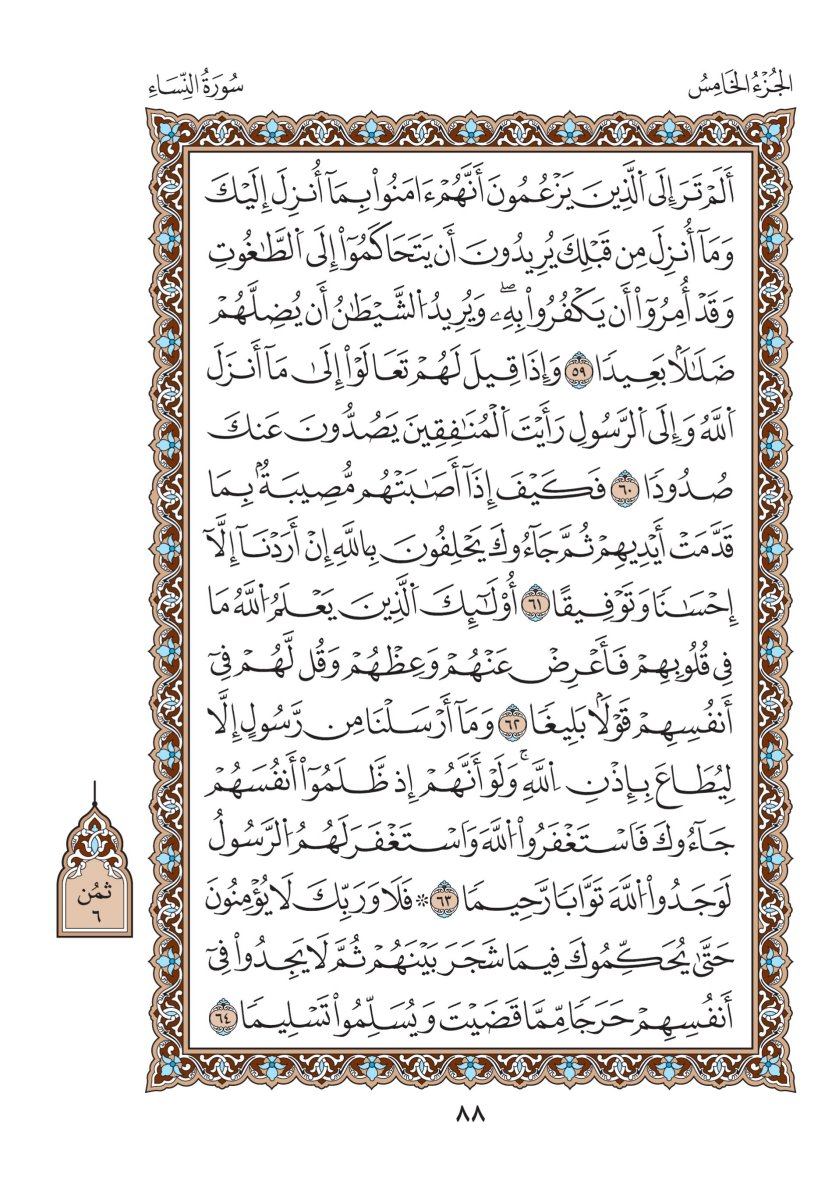 الجُزْءُ الخَامِسُ
سُورَةُ النِّسَاءِ
أَلَمْ تَرَ إِلَى اَلَّذِينَ يَزْعُمُونَ أَنَّهُمْ ءَامَنُواْ بِمَآ أُنزِلَ إِلَيْكَ
وَمَآ أُنزِلَ مِن قَبْلِكَ يُرِيدُونَ أَن يَتَحَاكَمُوٓاْ إِلَى اَلطَّٰغُوتِ
وَقَدْ أُمِرُوٓاْ أَن يَكْفُرُواْ بِهِۦۖ وَيُرِيدُ اُلشَّيْطَٰنُ أَن يُضِلَّهُمْ
ضَلَٰلَاۢ بَعِيدٗا ٥٩ وَإِذَا قِيلَ لَهُمْ تَعَالَوْاْ إِلَىٰ مَآ أَنزَلَ
اَللَّهُ وَإِلَى اَلرَّسُولِ رَأَيْتَ اَلْمُنَٰفِقِينَ يَصُدُّونَ عَنكَ
صُدُودٗا ٦٠ فَكَيْفَ إِذَآ أَصَٰبَتْهُم مُّصِيبَةُۢ بِمَا
قَدَّمَتْ أَيْدِيهِمْ ثُمَّ جَآءُوكَ يَحْلِفُونَ بِاللَّهِ إِنْ أَرَدْنَآ إِلَّآ
إِحْسَٰنٗا وَتَوْفِيقًا ٦١ أُوْلَٰٓئِكَ اَلَّذِينَ يَعْلَمُ اُللَّهُ مَا
فِي قُلُوبِهِمْ فَأَعْرِضْ عَنْهُمْ وَعِظْهُمْ وَقُل لَّهُمْ فِيٓ
أَنفُسِهِمْ قَوْلَاۢ بَلِيغٗا ٦٢ وَمَآ أَرْسَلْنَا مِن رَّسُولٍ إِلَّا
لِيُطَاعَ بِإِذْنِ اِللَّهِۚ وَلَوْ أَنَّهُمْ إِذ ظَّلَمُوٓاْ أَنفُسَهُمْ
جَآءُوكَ فَاسْتَغْفَرُواْ اُللَّهَ وَاسْتَغْفَرَ لَهُمُ اُلرَّسُولُ
لَوَجَدُواْ اُللَّهَ تَوَّابٗا رَّحِيمٗا ٦٣ ۞ فَلَا وَرَبِّكَ لَا يُؤْمِنُونَ
حَتَّىٰ يُحَكِّمُوكَ فِيمَا شَجَرَ بَيْنَهُمْ ثُمَّ لَا يَجِدُواْ فِيٓ
أَنفُسِهِمْ حَرَجٗا مِّمَّا قَضَيْتَ وَيُسَلِّمُواْ تَسْلِيمٗا ٦٤
ثُمُن
٦
٨٨